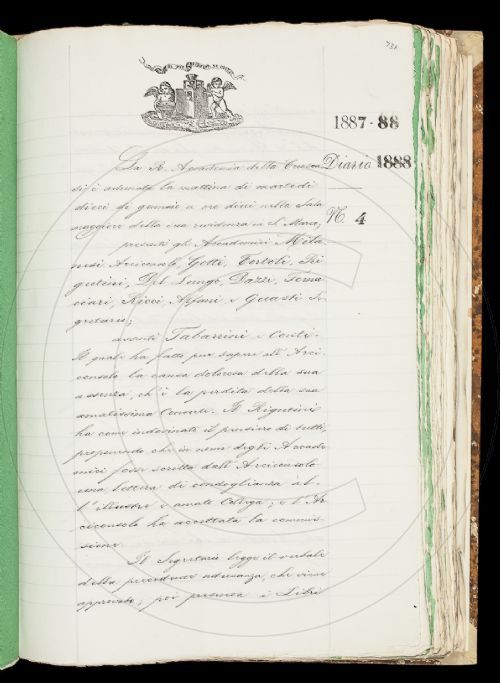 731
1887-88
La R. Accademia della Crusca
Diario 1888
si è adunata la mattina di martedì
dieci di gennaio a ore dieci nella Sala
maggiore della sua residenza in S. Marco,
N. 4
presenti gli Accademici Mila-
nesi Arciconsolo, Gotti, Tortoli, Ri-
gutini, Del Lungo, Dazzi, Torna-
ciari, Ricci, Alfani e Guasti Se-
gretario;
assenti Tabarrini e Conti.
Il quale ha fatto pur sapere all'Arci-
consolo la causa dolorosa della sua
assenza, ch'è la perdita della sua
amatissima Consorte. Il Rigutini
ha come indovinato il pensiero di tutti,
proponendo che in nome degli Accade-
mici fosse scritta dall'Arciconsolo
una lettera di condoglianza al-
l'illustre e amato Collega; e l'Ar-
ciconsolo ha accettata la commis-
sione.
Il Segretario legge il verbale
della precedente adunanza, che viene
approvato; poi presenta i Libri